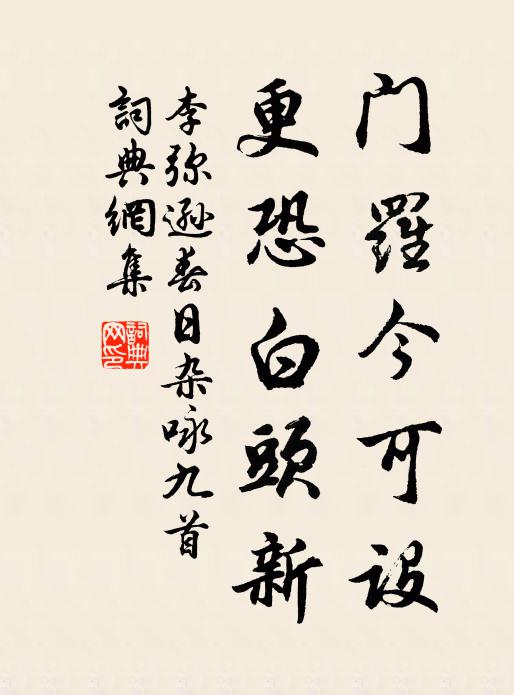 门羅今可設
更恐白頭新
李弥遜春日杂咏九首
詞典網集
詞典网印